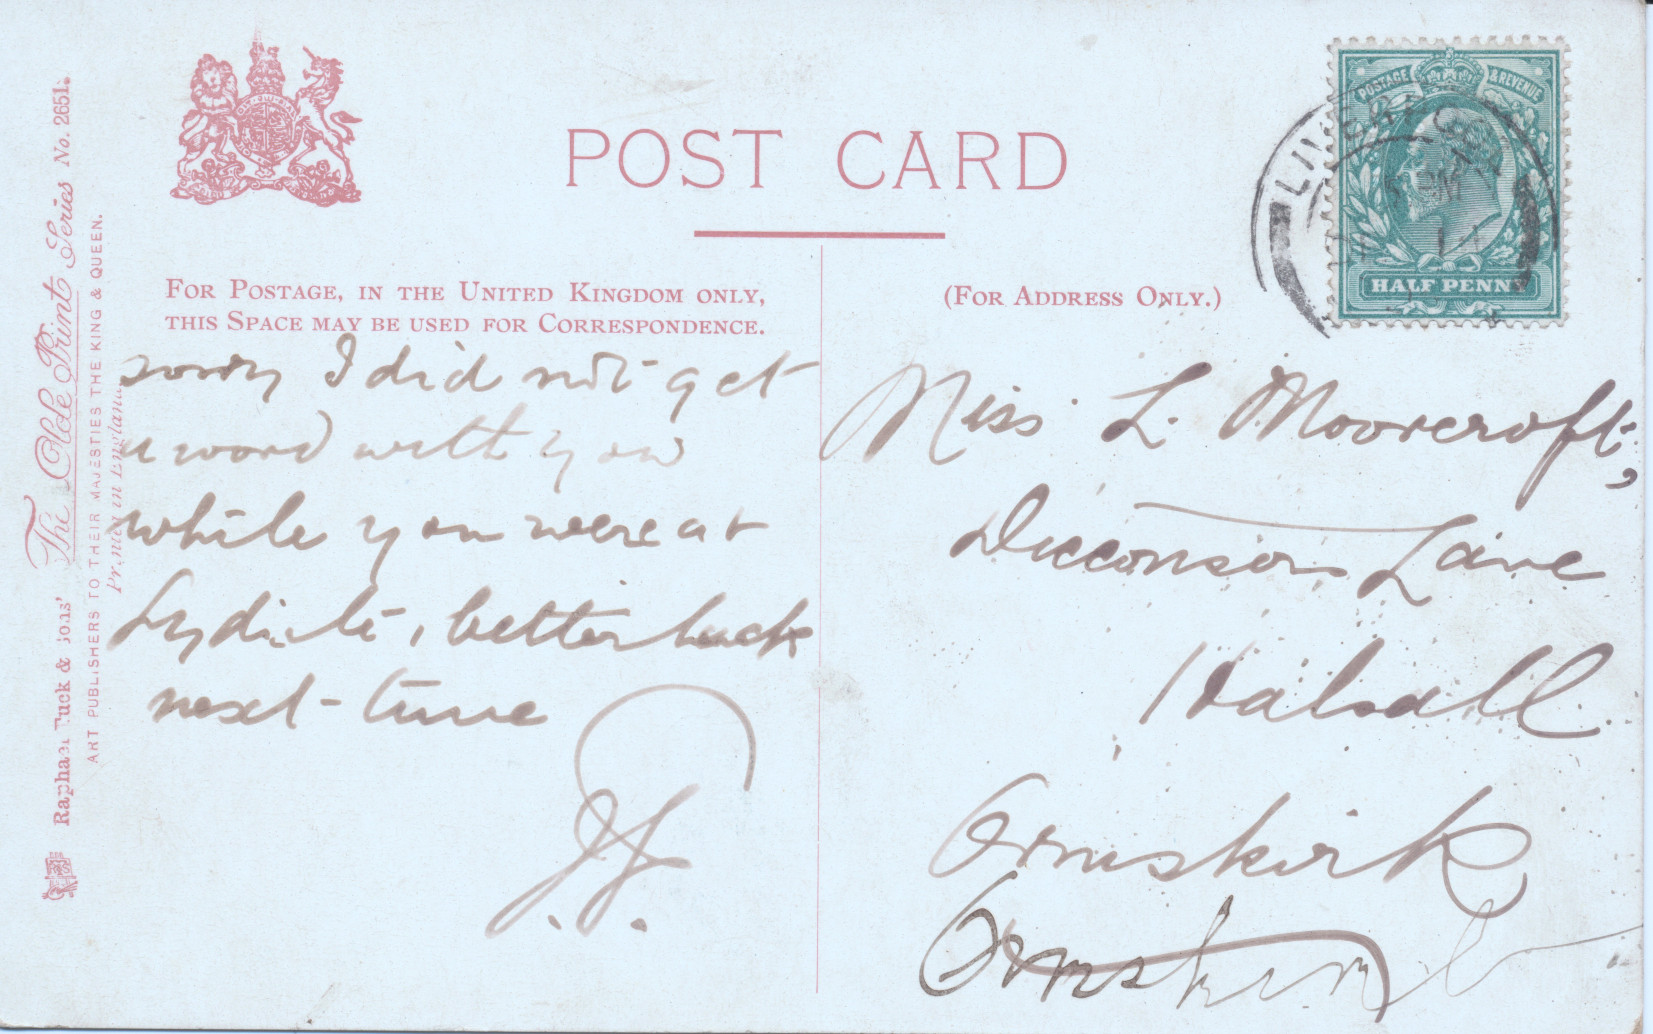 POST CARD
FOR POSTAGE, IN THE UNITED KINGDOM ONLY,
THIS SPACE MAY BE USED FOR CORRESPONDENCE.
(FOR ADDRESS ONLY.)
POSTAGE & REVENUE
HALF PENNY
Raphael Tuck & Sons'
The Olde Print Series No. 2651.
ART PUBLISHERS TO THEIR MAJESTIES THE KING & QUEEN.
Printed in England.
sorry I did not get
a word with you
while you were at
Lydiate, better luck
next time
J.J.
Miss L. Moorcroft,
Dicconson Lane
Halsall
Ormskirk
Ormskirk